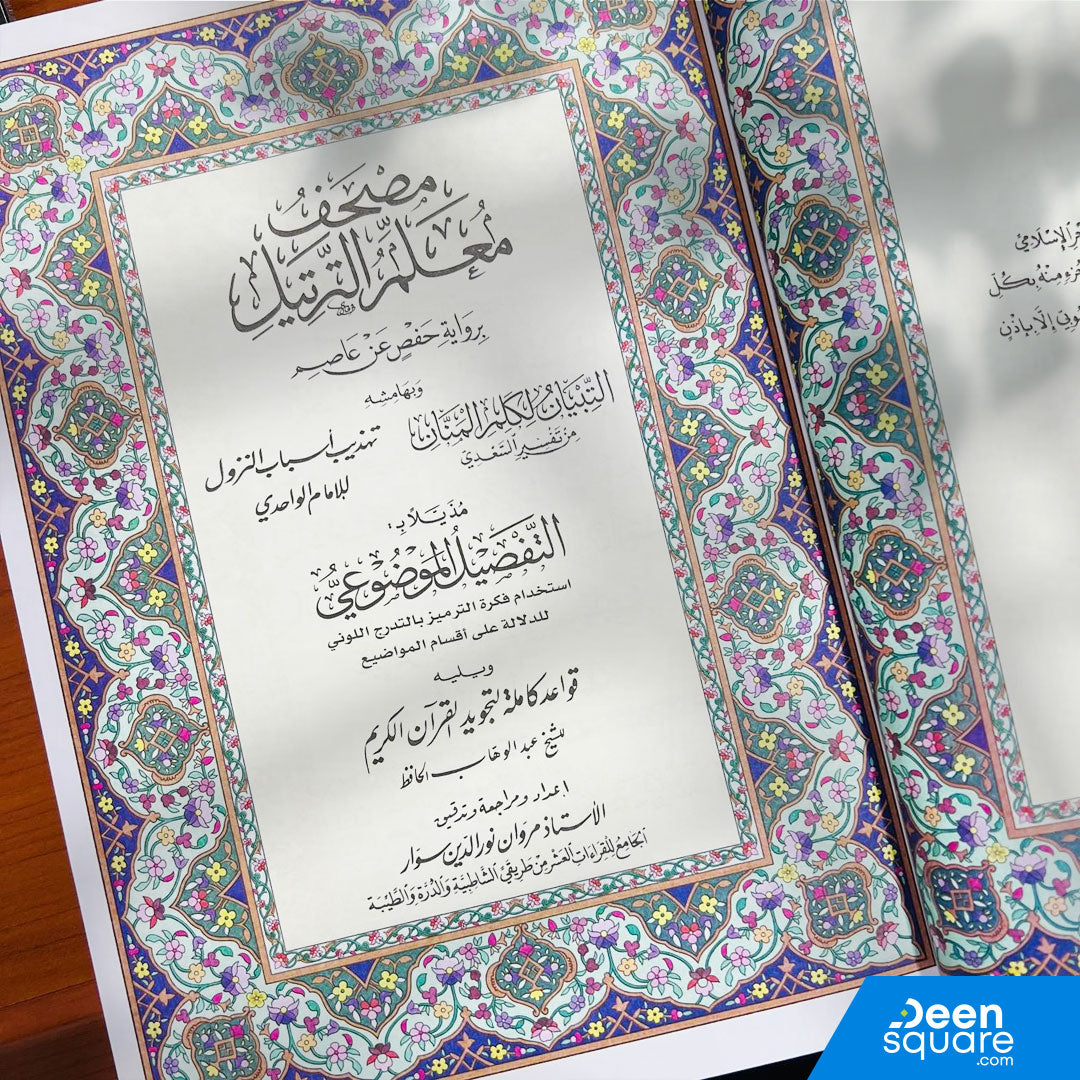 مُصْحَفُ
مُعَلِّمُ التَّرْتِيلِ
بِرِوَايَةِ حَفْصٍ عَنْ عَاصِمٍ
وَبهَامشه
التِّبْيَانُ لِكَلِمِ الْمَنَّانِ
مِنْ تَفْسِيرِ السَّعْدِي
تهذيب أسباب النزول
للإمام الواحدي
مُذَيَّلًا بِـ:
التَّفْصِيلُ الْمَوْضُوعِيُّ
استخدام فكرة الترميز بالتدرج اللوني
للدلالة على أقسام المواضيع
ويليه
قواعد كاملة لتجويد القرآن الكريم
للشيخ عبد الوهاب الحافظ
إعداد ومراجعة وتدقيق
الأستاذ مروان نور الدين سوار
الْجَامِعُ لِلْقِرَاءَاتِ الْعَشْرِ مِنْ طَرِيقَيْ الشَّاطِبِيَّةِ وَالدُّرَّةِ وَالطَّيِّبَةِ
الإِسْلَامِيّ
مِنْهُ بِكُلِّ
إِلَّا بِإِذْنٍ
Deen
square
.com